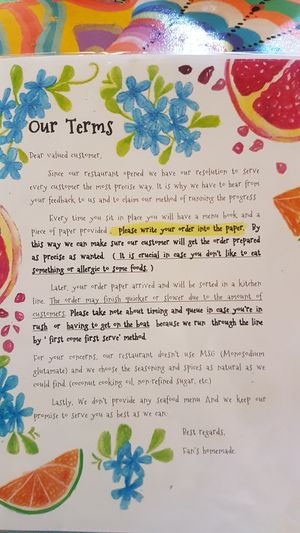 Our Terms
Dear valued customer,
Since our restaurant opened we have our resolution to serve
every customer the most precise way. It is why we have to hear from
your feedback to us and to claim our method of running the progress
Every time you sit in place you will have a menu book and a
piece of paper provided. Please write your order into the paper. By
this way we can make sure our customer will get the order prepared
as precise as wanted. ( It is crucial in case you don't like to eat
something or allergic to some foods. )
Later, your order paper arrived and will be sorted in a kitchen
line. The order may finish quicker or slower due to the amount of
customers. Please take note about timing and queue in case you're in
rush or having to get on the boat because we run through the line
by ' first come first serve' method.
For your concerns, our restaurant doesn't use MSG (Monosodium
glutamate) and we choose the seasoning and spices as natural as we
could find. (coconut cooking oil, non-refined sugar, etc.)
Lastly, We don't provide any seafood menu And we keep our
promise to serve you as best as we can.
Best regards,
Fan's homemade.